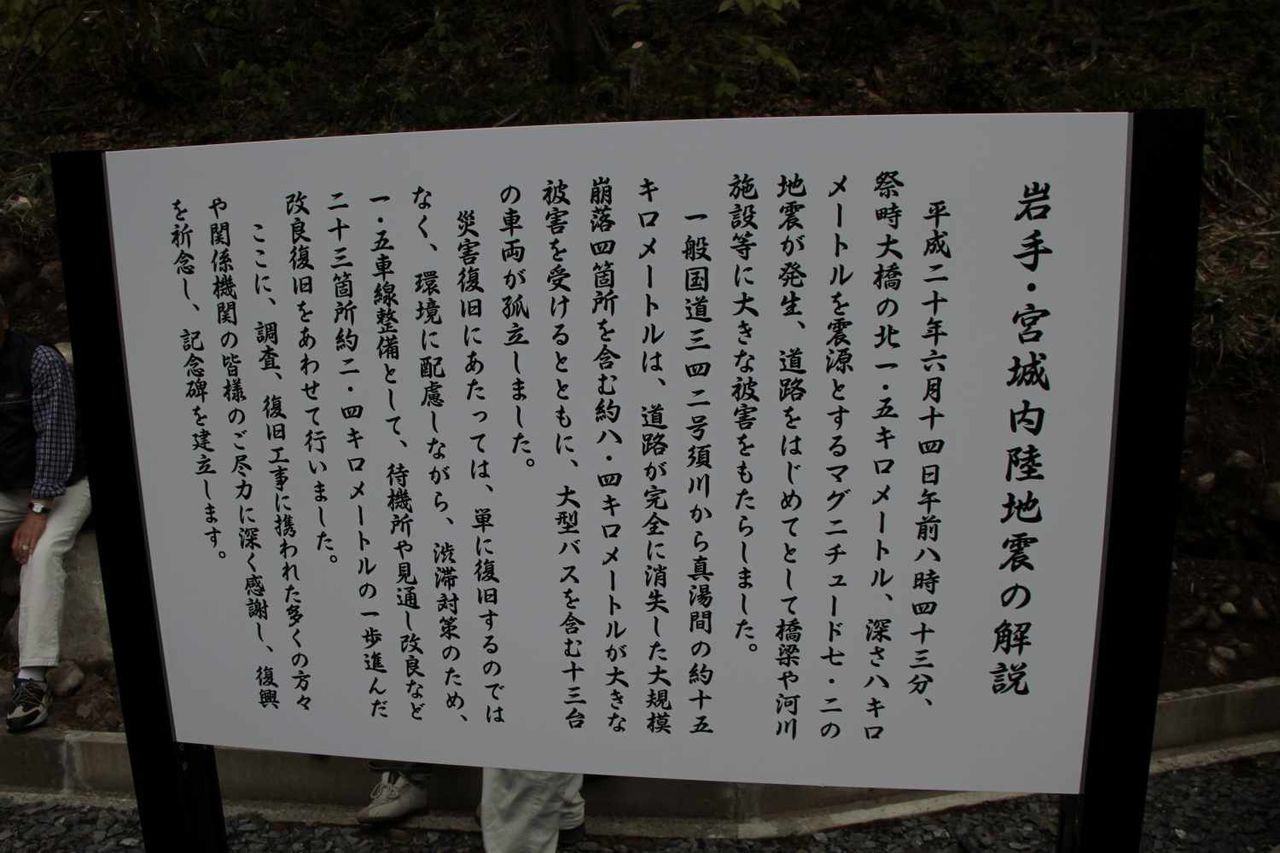 岩手・宮城内陸地震の解説
平成二十年六月十四日午前八時四十三分、
祭時大橋の北一・五キロメートル、深さ八キロ
メートルを震源とするマグニチュード七・二の
地震が発生、道路をはじめてとして橋梁や河川
施設等に大きな被害をもたらしました。
一般国道三四二号須川から真湯間の約十五
キロメートルは、道路が完全に消失した大規模
崩落四箇所を含む約八・四キロメートルが大きな
被害を受けるとともに、大型バスを含む十三台
の車両が孤立しました。
災害復旧にあたっては、単に復旧するのでは
なく、環境に配慮しながら、渋滞対策のため、
一・五車線整備として、待機所や見通し改良など
二十三箇所約二・四キロメートルの一歩進んだ
改良復旧をあわせて行いました。
ここに、調査、復旧工事に携われた多くの方々
や関係機関の皆様のご尽力に深く感謝し、復興
を祈念し、記念碑を建立します。